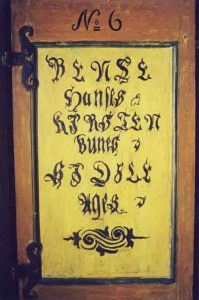 No 6
BENTE
Hanses
KIRSTEN
Sunes
BODILE
Ages